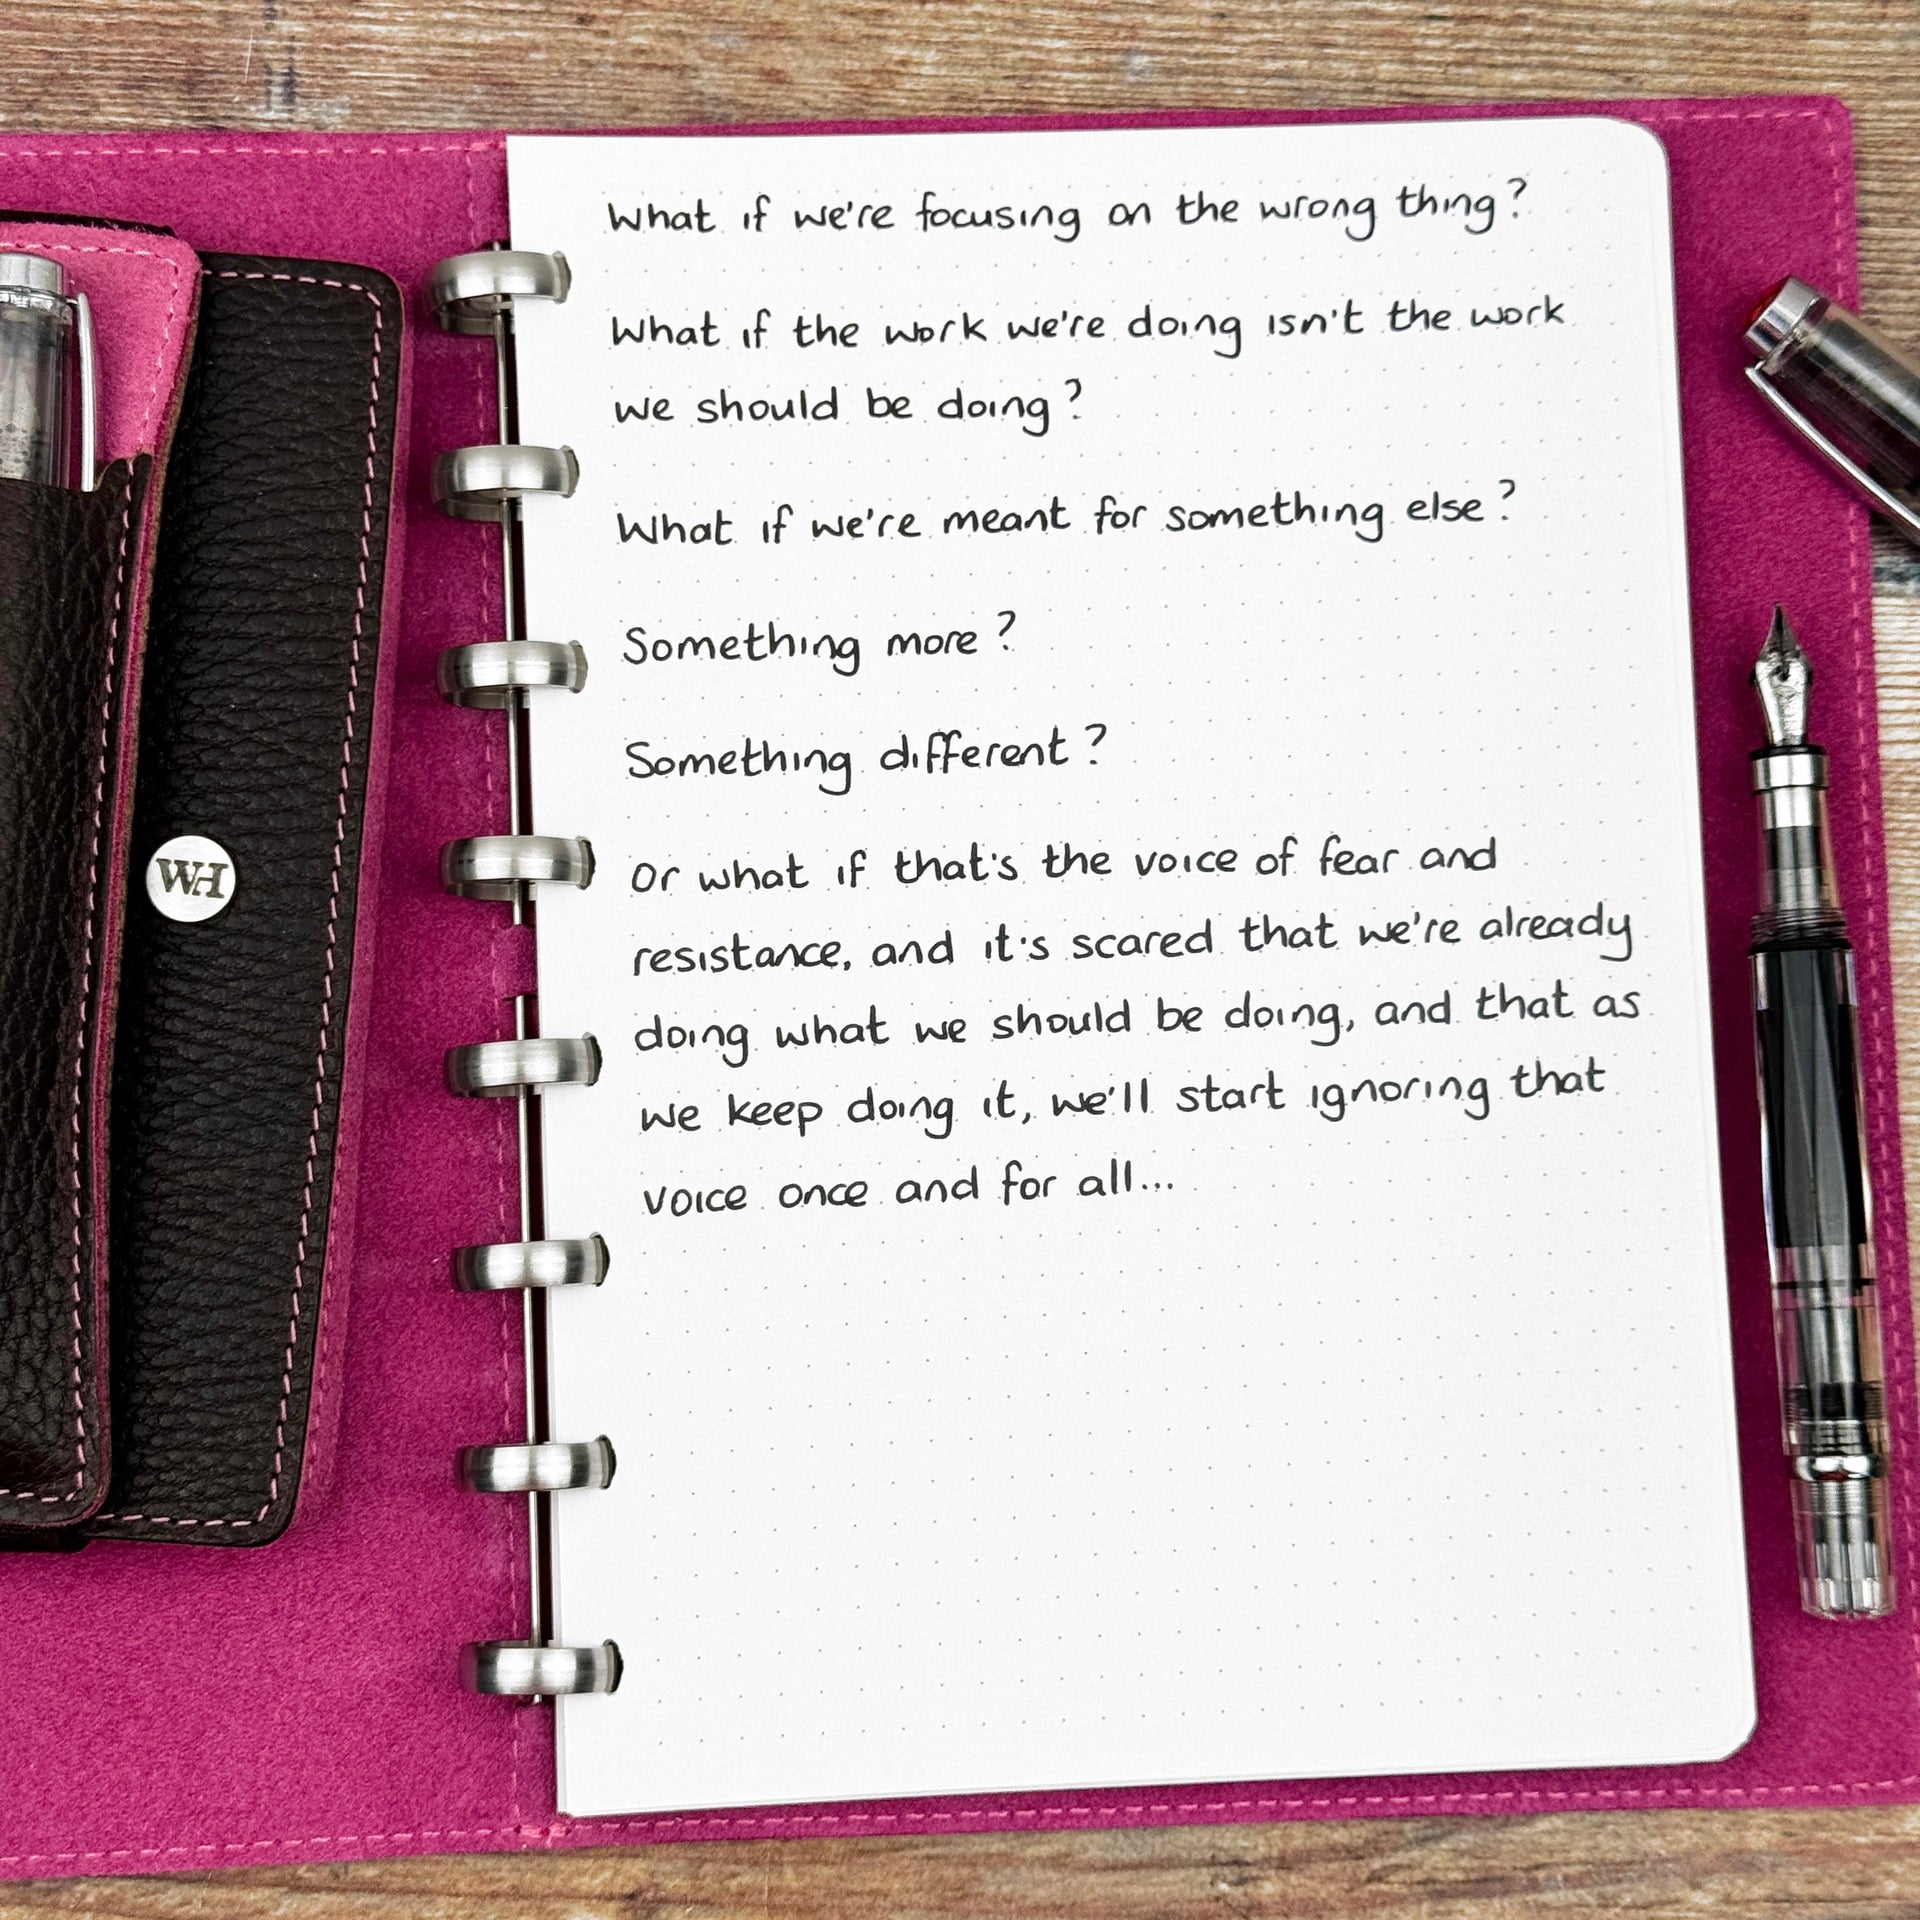 What if we're focusing on the wrong thing?
What if the work we're doing isn't the work
we should be doing?
What if we're meant for something else?
Something more?
Something different?
Or what if that's the voice of fear and
resistance, and it's scared that we're already
doing what we should be doing, and that as
we keep doing it, we'll start ignoring that
voice once and for all...
WH